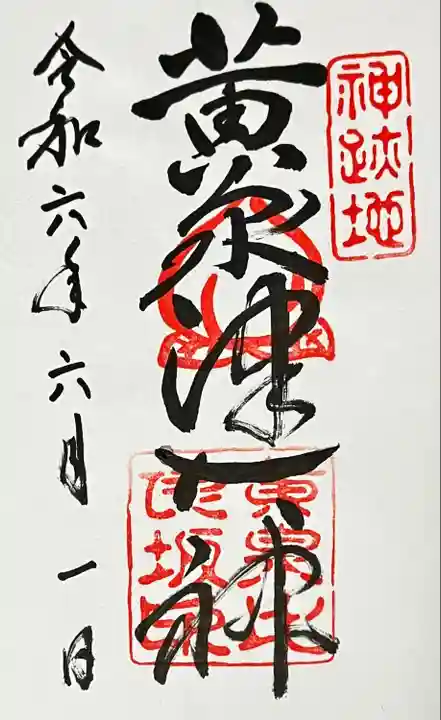 神跡地
黄泉津大神
黄泉比良坂
令和六年六月一日